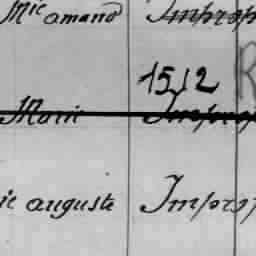 Mie amand Improp
1512 R
Marie Improp
ie auguste Improp